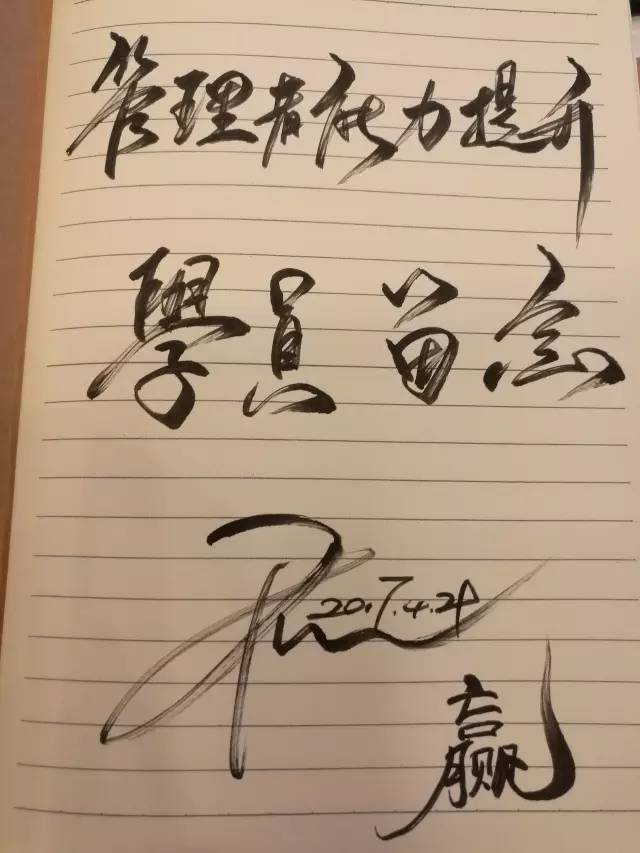 管理者能力提升
學員留念
2017.4.21
赢